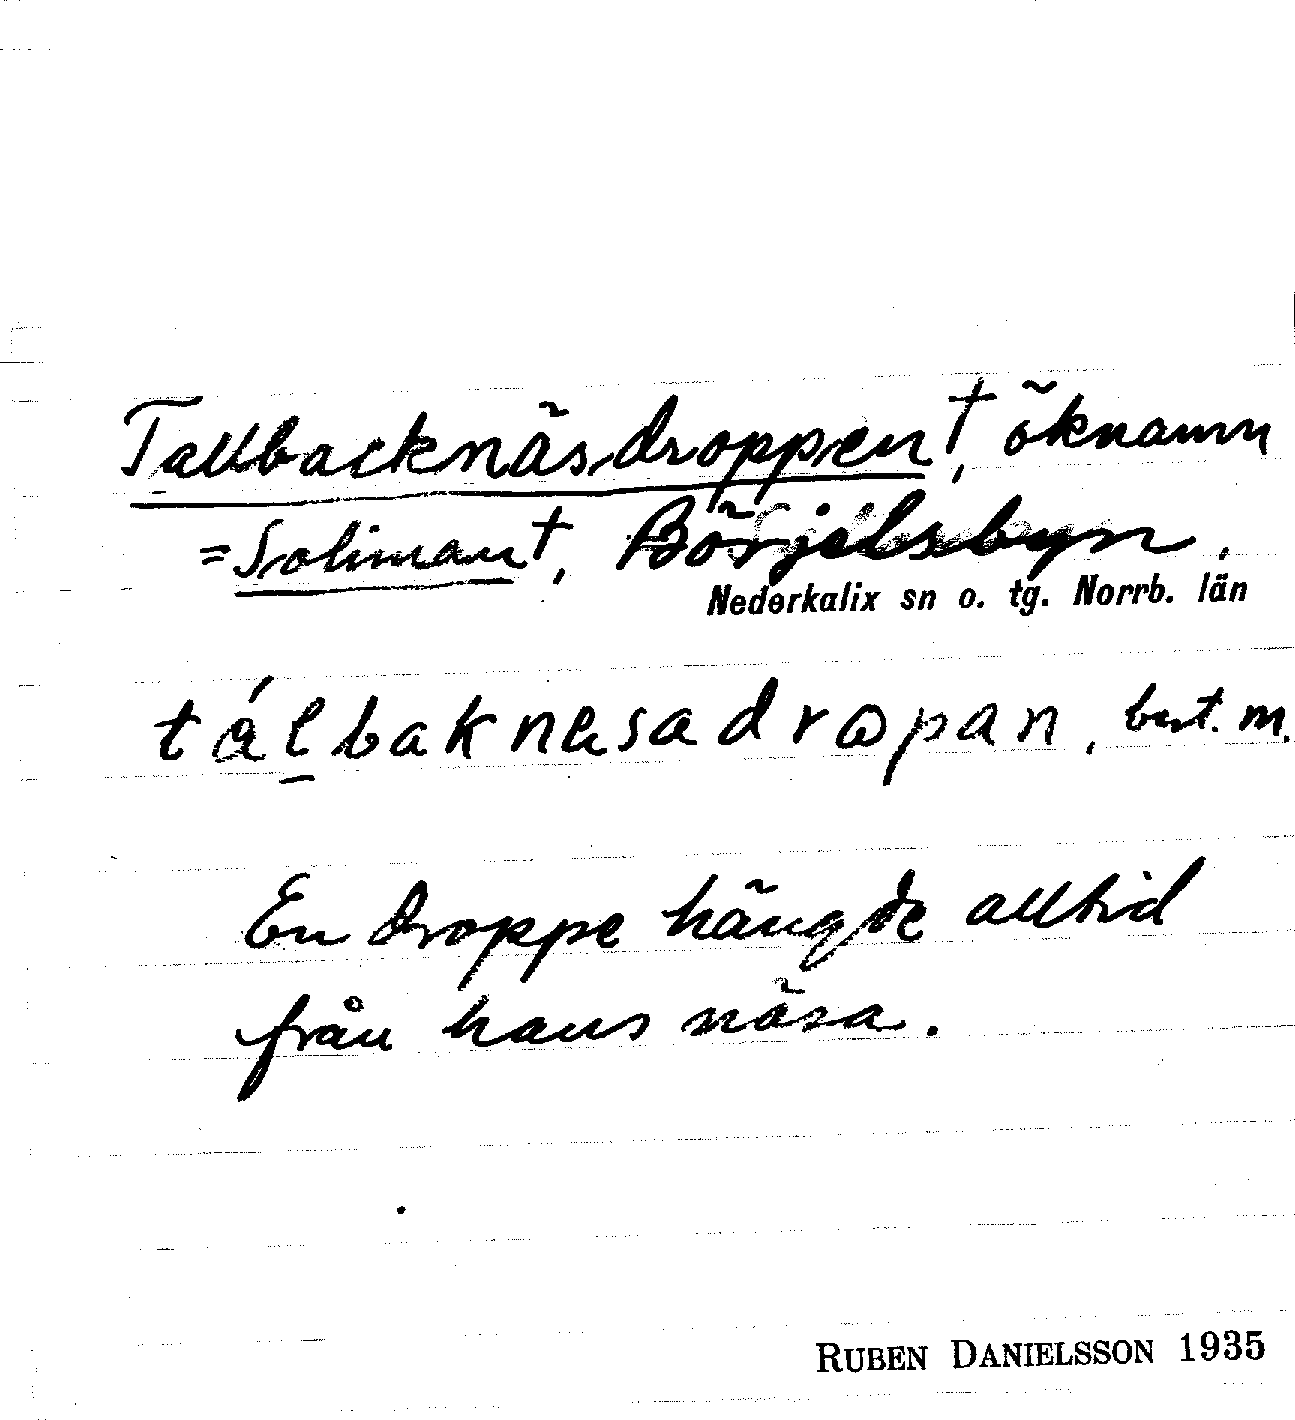 Tallbacknäsdroppen †, öknamn
= Soliman †, Börjelsbyn,
Nederkalix sn o. tg. Norrb. län
tálbaknesadrɷpan, best. m.
En droppe hängde alltid
från hans näsa.
RUBEN DANIELSSON 1935